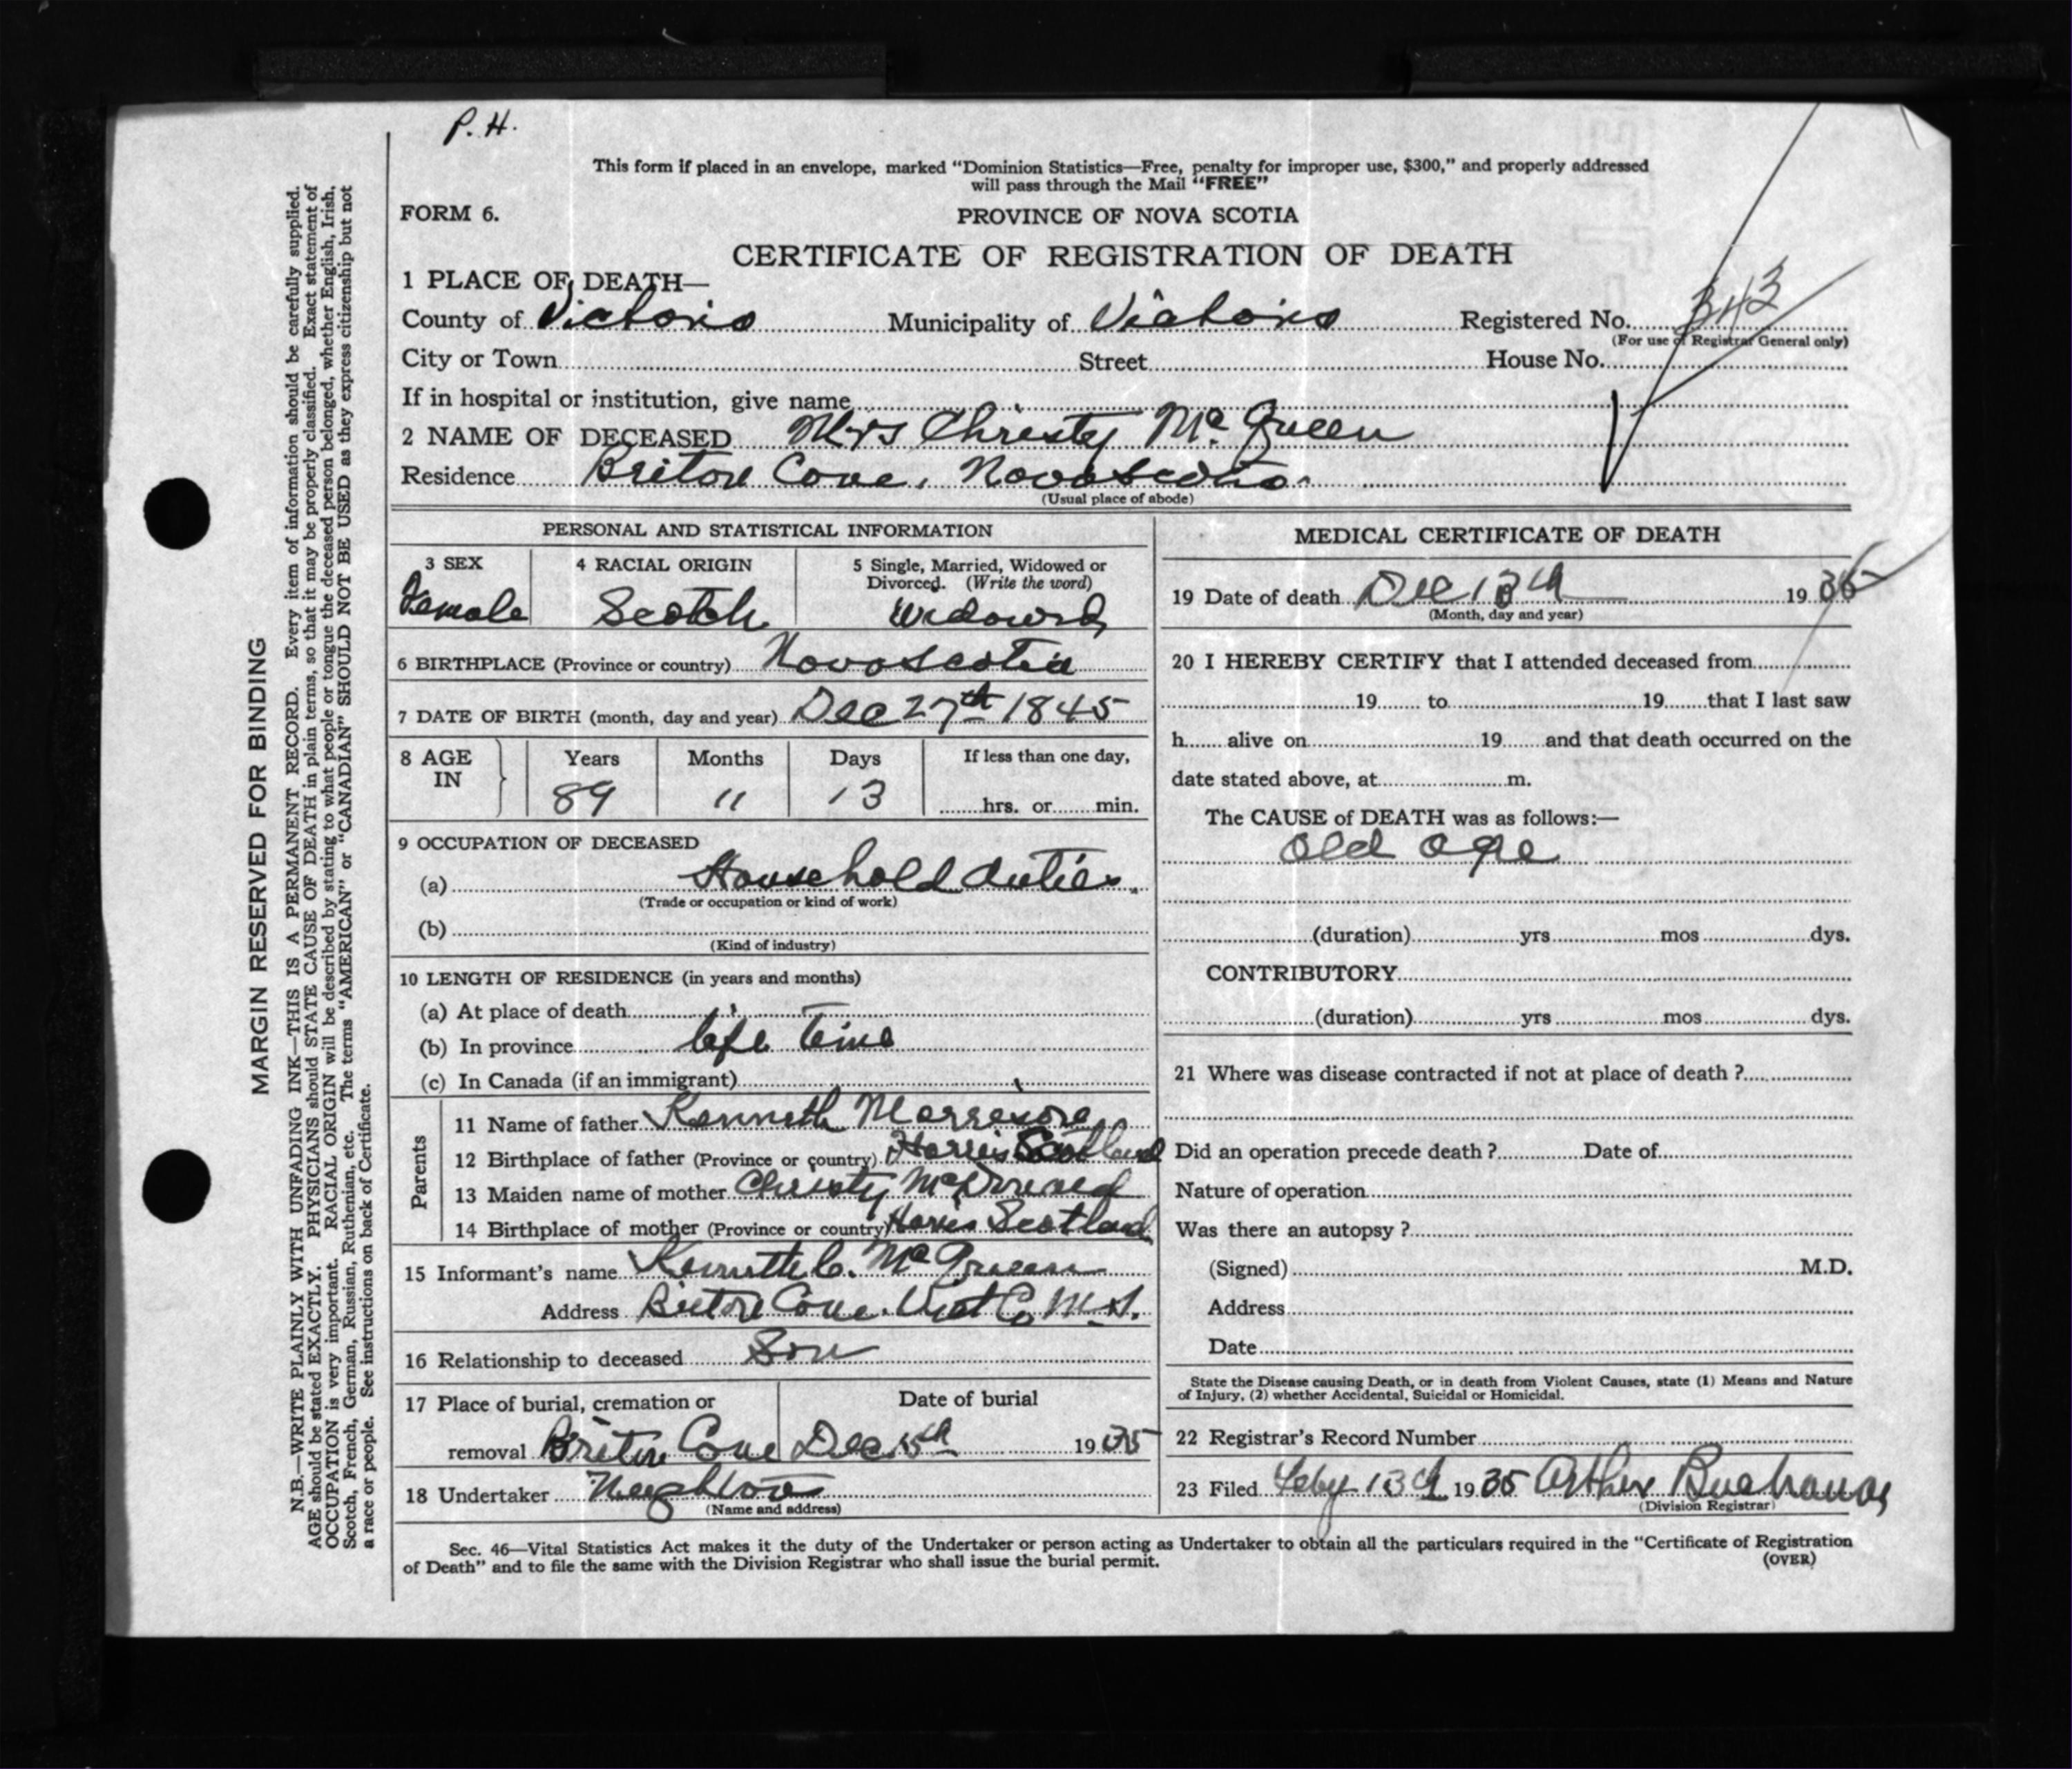 P. H.
This form if placed in an envelope, marked “Dominion Statistics—Free, penalty for improper use, $300,” and properly addressed
will pass through the Mail “FREE”
FORM 6.
PROVINCE OF NOVA SCOTIA
CERTIFICATE OF REGISTRATION OF DEATH
1 PLACE OF DEATH—
County of Victoria Municipality of Victoria Registered No. 343
(For use of Registrar General only)
City or Town Street House No.
If in hospital or institution, give name
2 NAME OF DECEASED Mrs Christy Mc Queen
Residence Briton Cove, Nova Scotia.
(Usual place of abode)
PERSONAL AND STATISTICAL INFORMATION
3 SEX 4 RACIAL ORIGIN 5 Single, Married, Widowed or
Divorced. (Write the word)
Female Scotch Widowed
6 BIRTHPLACE (Province or country) Nova Scotia
7 DATE OF BIRTH (month, day and year) Dec 27th 1845
8 AGE IN Years Months Days If less than one day,
89 11 13 hrs. or min.
9 OCCUPATION OF DECEASED
(a) Household duties.
(Trade or occupation or kind of work)
(b)
(Kind of industry)
10 LENGTH OF RESIDENCE (in years and months)
(a) At place of death
(b) In province life time
(c) In Canada (if an immigrant)
Parents
11 Name of father Kenneth Morrison
12 Birthplace of father (Province or country) Harris Scotland
13 Maiden name of mother Christy McDonald
14 Birthplace of mother (Province or country) Harris Scotland
15 Informant’s name Kenneth C. Mc Queen
Address Briton Cove. Vict Co N.S.
16 Relationship to deceased Son
17 Place of burial, cremation or Date of burial
removal Briton Cove Dec 15th 1935
18 Undertaker Neighbors
(Name and address)
MEDICAL CERTIFICATE OF DEATH
19 Date of death Dec 13th 1935
(Month, day and year)
20 I HEREBY CERTIFY that I attended deceased from
19 to 19 that I last saw
h alive on 19 and that death occurred on the
date stated above, at m.
The CAUSE of DEATH was as follows:—
old age
(duration) yrs mos dys.
CONTRIBUTORY
(duration) yrs mos dys.
21 Where was disease contracted if not at place of death ?
Did an operation precede death ? Date of
Nature of operation
Was there an autopsy ?
(Signed) M.D.
Address
Date
State the Disease causing Death, or in death from Violent Causes, state (1) Means and Nature
of Injury, (2) whether Accidental, Suicidal or Homicidal.
22 Registrar’s Record Number
23 Filed Feby 13th 1935 Arther Buchanan
(Division Registrar)
Sec. 46—Vital Statistics Act makes it the duty of the Undertaker or person acting as Undertaker to obtain all the particulars required in the “Certificate of Registration
of Death” and to file the same with the Division Registrar who shall issue the burial permit. (OVER)
MARGIN RESERVED FOR BINDING
N.B.—WRITE PLAINLY WITH UNFADING INK—THIS IS A PERMANENT RECORD. Every item of information should be carefully supplied.
AGE should be stated EXACTLY. PHYSICIANS should STATE CAUSE OF DEATH in plain terms, so that it may be properly classified. Exact statement of
OCCUPATION is very important. RACIAL ORIGIN will be described by stating to what people or tongue the deceased person belonged, whether English, Irish,
Scotch, French, German, Russian, Ruthenian, etc. The terms “AMERICAN” or “CANADIAN” SHOULD NOT BE USED as they express citizenship but not
a race or people. See instructions on back of Certificate.